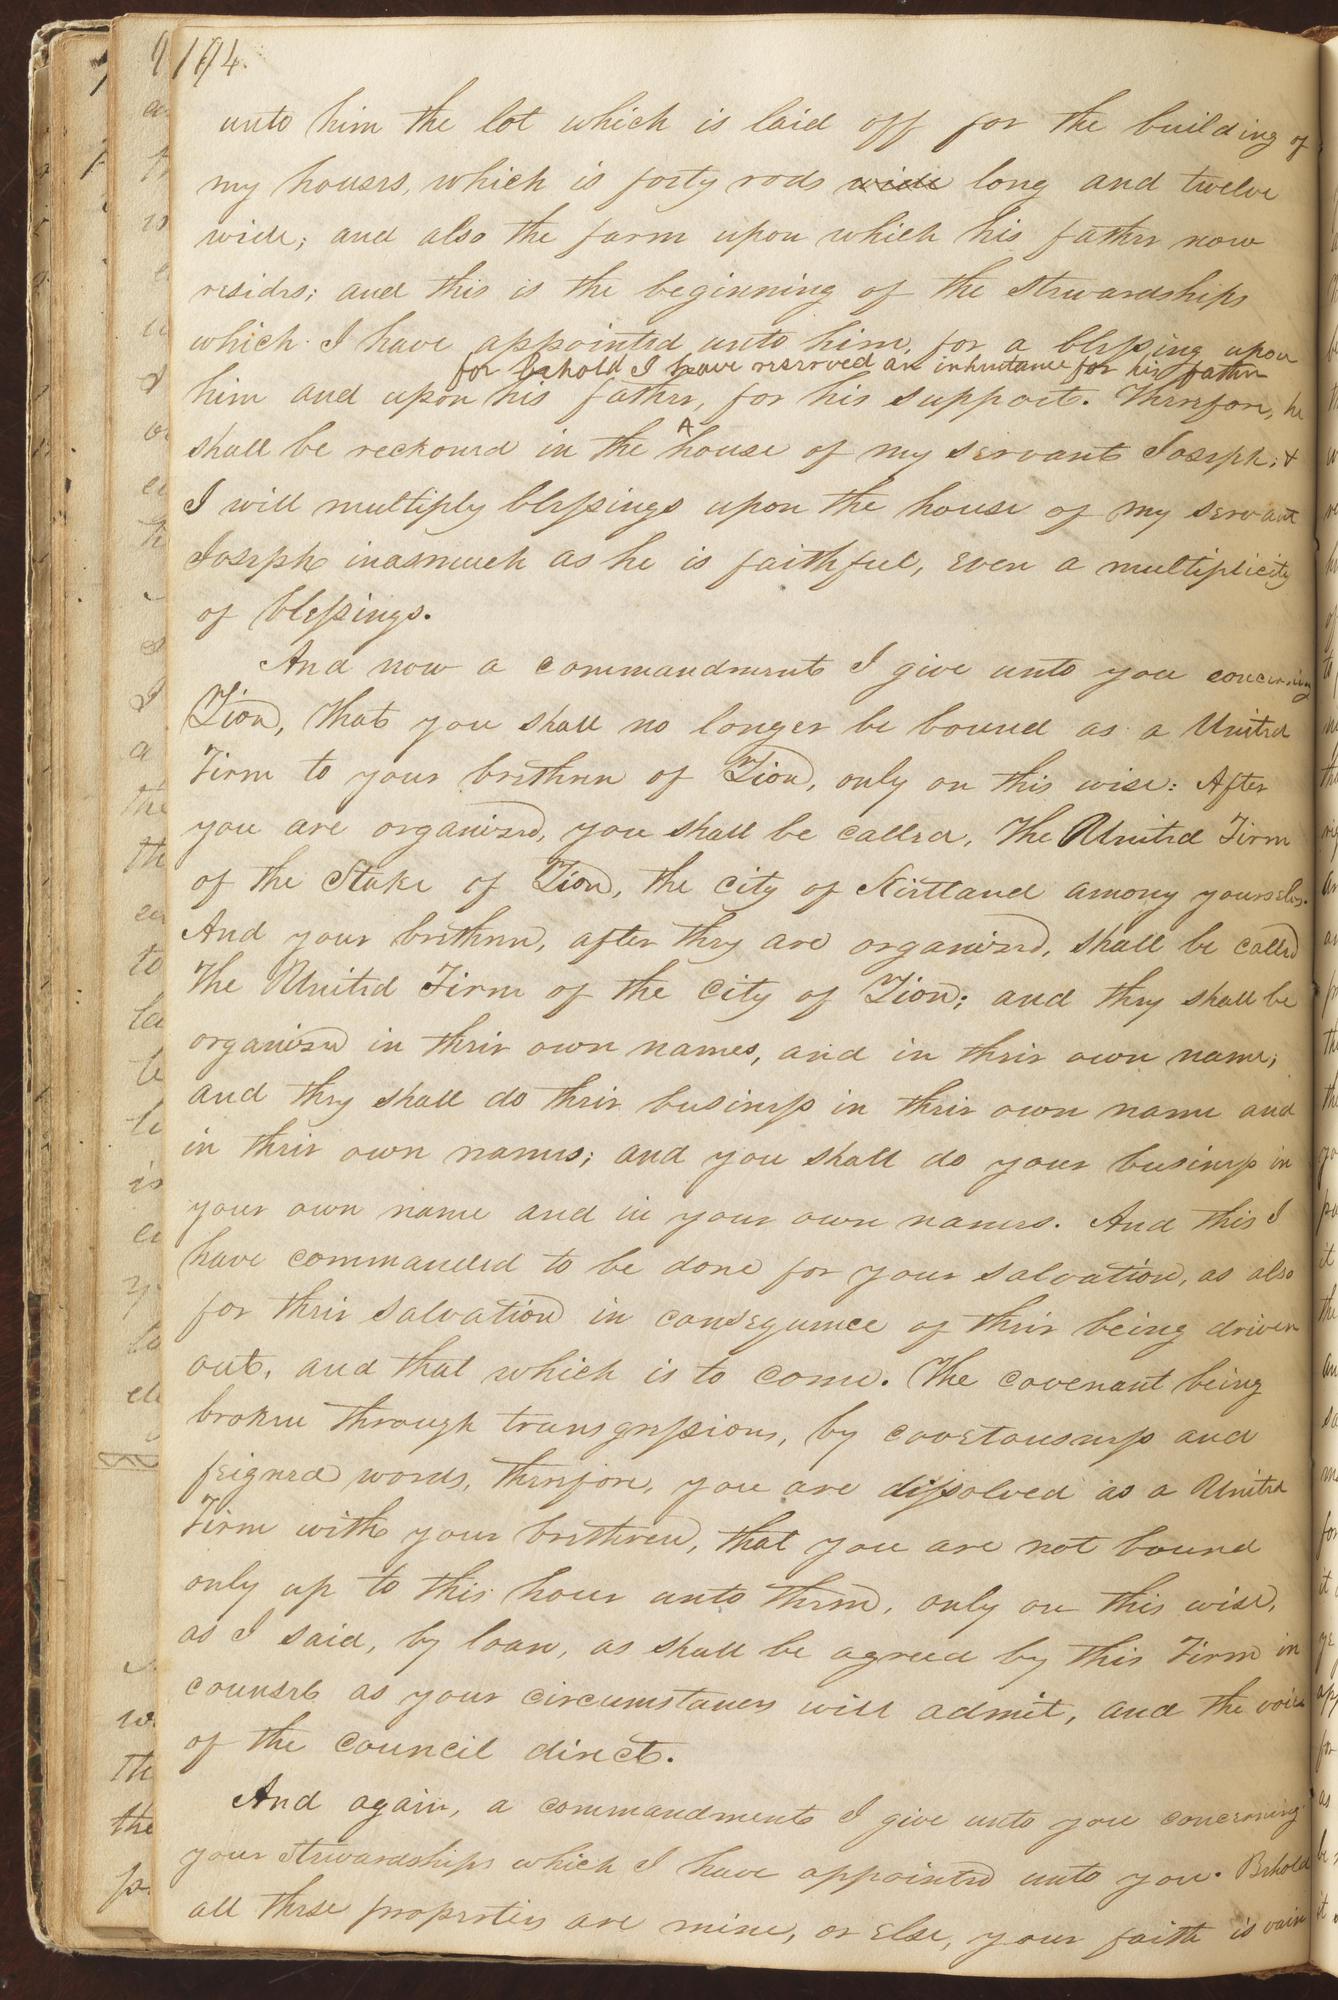 104.
unto him the lot which is laid off for the building of
my houses, which is forty rods wide long and twelve
wide; and also the farm upon which his father now
resides; and this is the beginning of the stewardships
which I have appointed unto him, for a blessing upon
for behold I have reserved an inheritance for his father
him and upon his father, for his support. Therefore, he
shall be reckoned in the house of my servant Joseph; &
I will multiply blessings upon the house of my servant
Joseph inasmuch as he is faithful, even a multiplicity
of blessings.
And now a commandment I give unto you concerning
Zion, that you shall no longer be bound as a United
Firm to your brethren of Zion, only on this wise: After
you are organized, you shall be called, The United Firm
of the Stake of Zion, the city of Kirtland among yourselves.
And your brethren, after they are organized, shall be called
The United Firm of the City of Zion; and they shall be
organized in their own names, and in their own name;
and they shall do their business in their own name and
in their own names; and you shall do your business in
your own name and in your own names. And this I
have commanded to be done for your salvation, as also
for their salvation in consequence of their being driven
out, and that which is to come. The covenant being
broken through transgression, by covetousness and
feigned words, therefore, you are dissolved as a United
Firm with your brethren, that you are not bound
only up to this hour unto them, only on this wise,
as I said, by loan, as shall be agreed by this Firm in
counsel as your circumstances will admit, and the voice
of the council direct.
And again, a commandment I give unto you concerning
your stewardships which I have appointed unto you. Behold
all these properties are mine, or else, your faith is vain